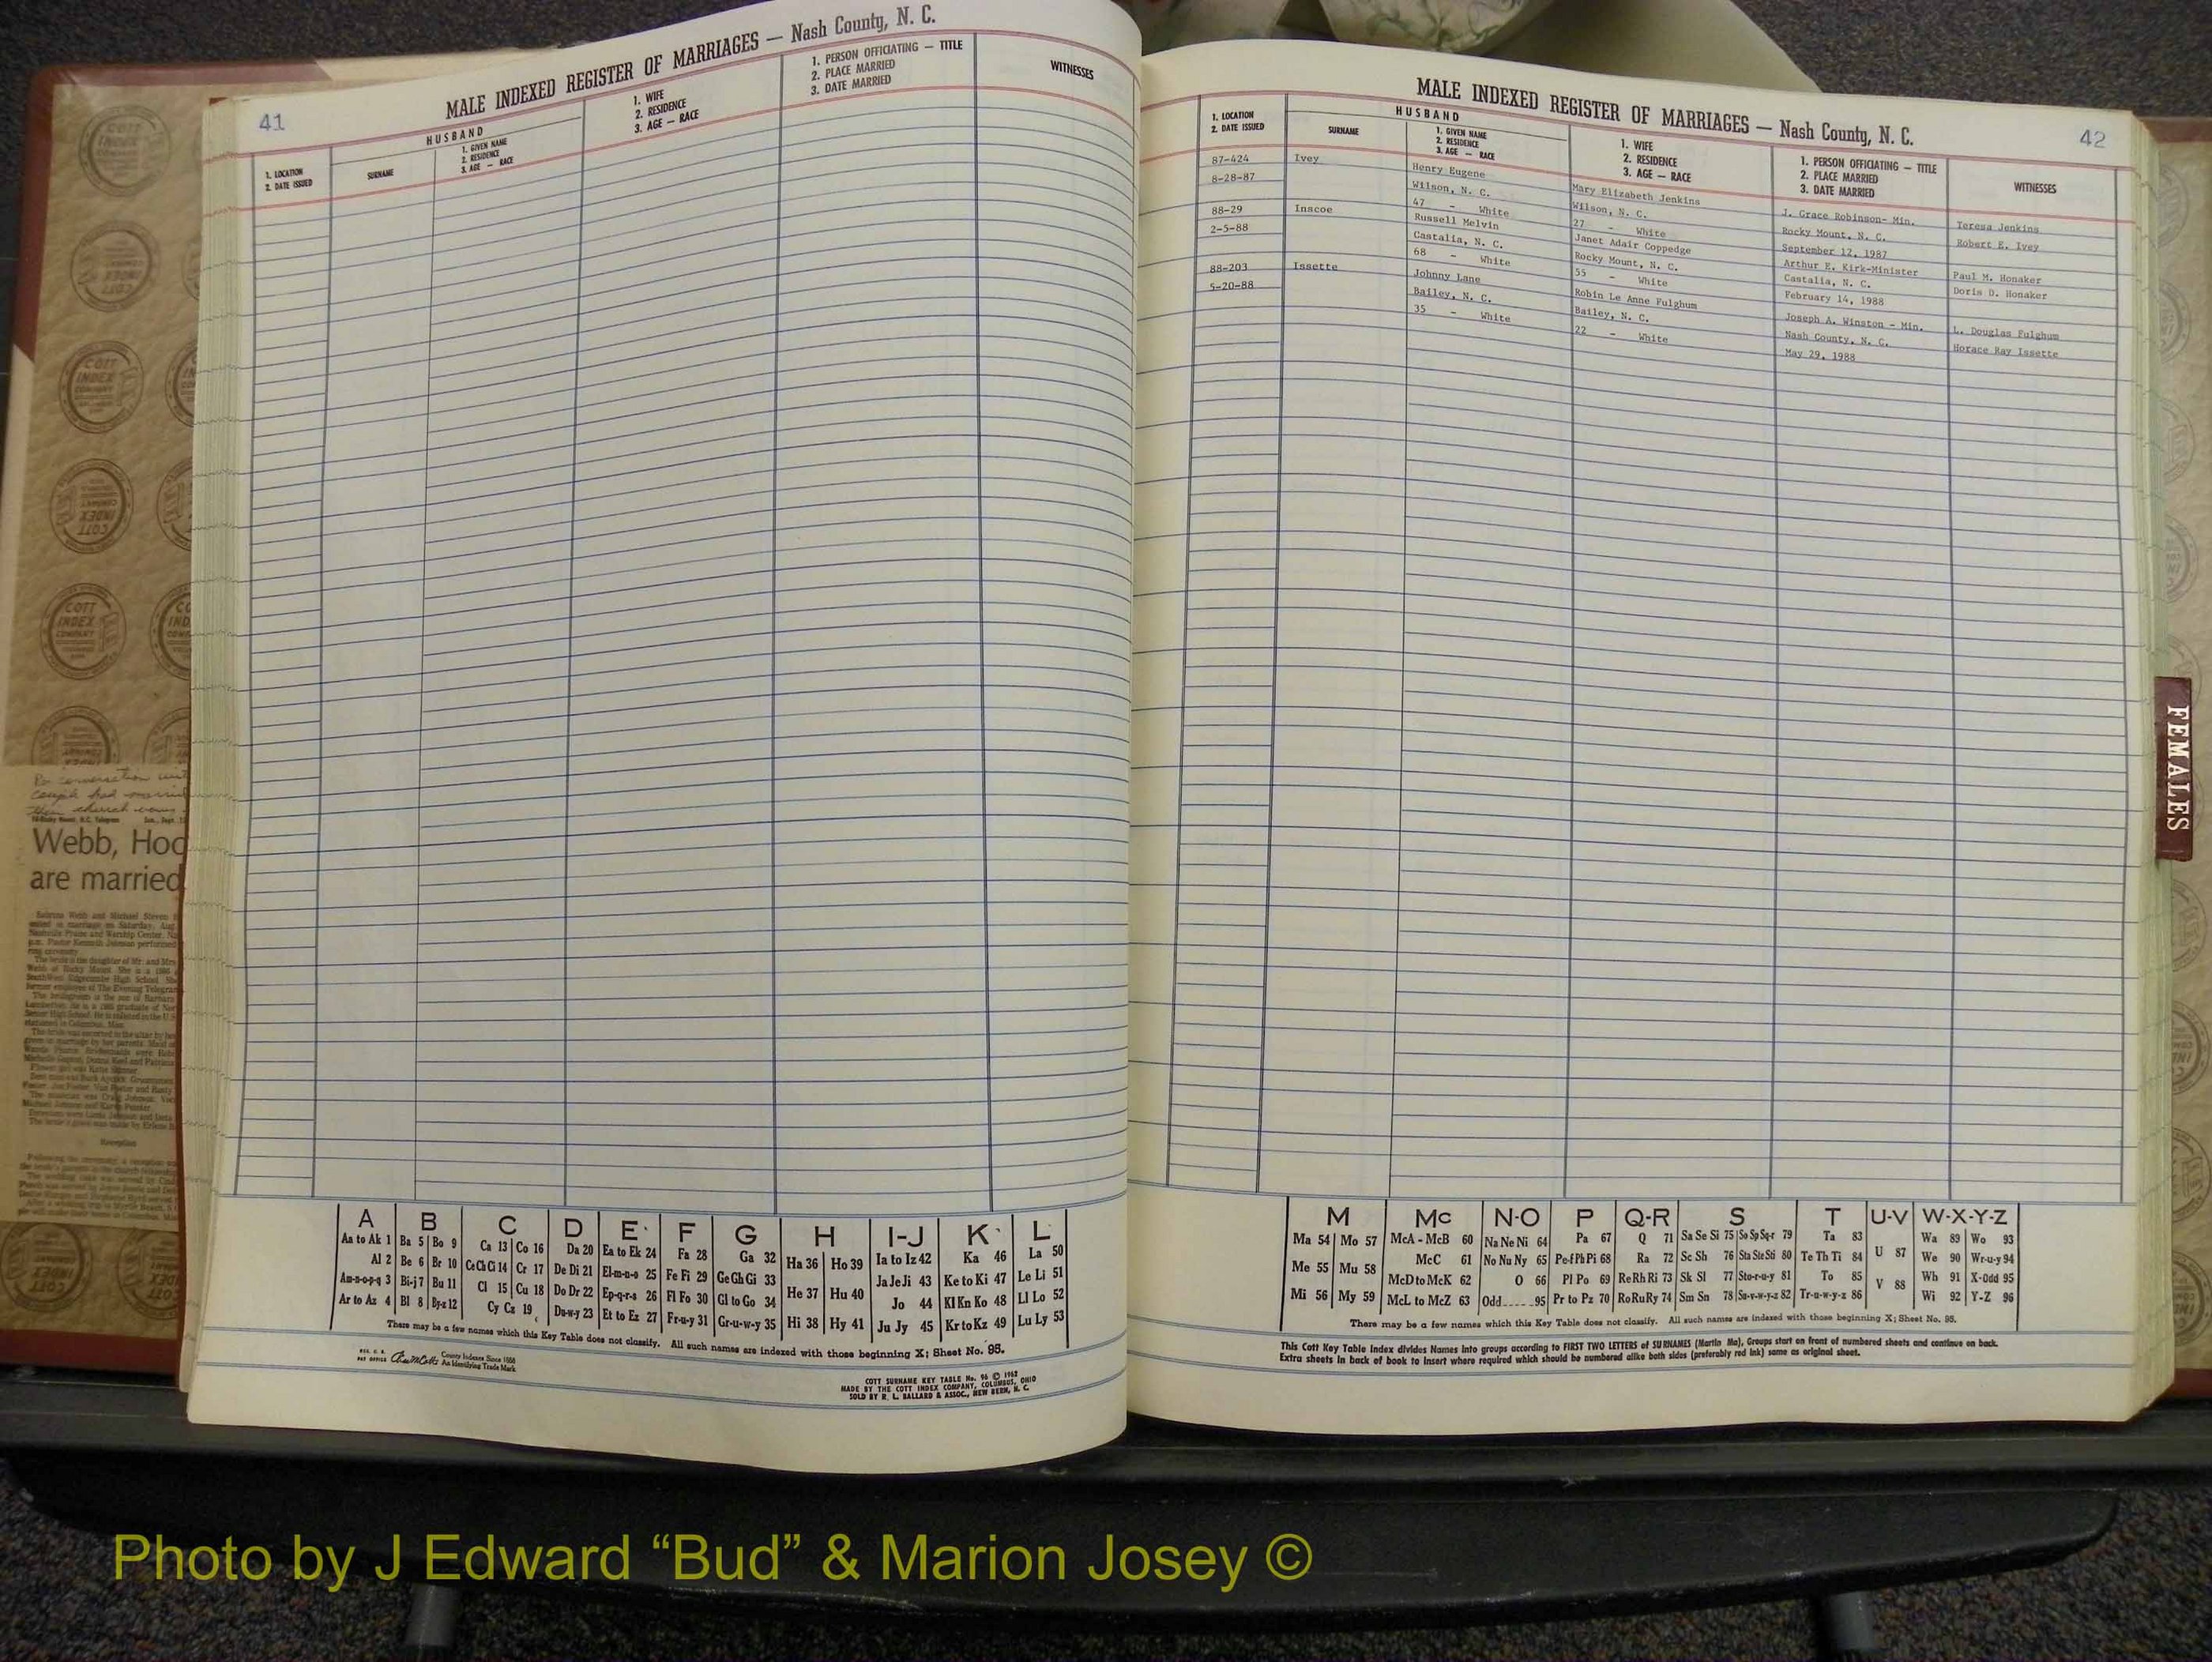 41
MALE INDEXED REGISTER OF MARRIAGES — Nash County, N. C.
1. LOCATION
2. DATE ISSUED
HUSBAND
SURNAME
1. GIVEN NAME
2. RESIDENCE
3. AGE — RACE
1. WIFE
2. RESIDENCE
3. AGE — RACE
1. PERSON OFFICIATING — TITLE
2. PLACE MARRIED
3. DATE MARRIED
WITNESSES
A B C D E F G H I-J K L
Aa to Ak 1 Ba 5 Bo 9 Ca 13 Co 16 Da 20 Ea to Ek 24 Fa 28 Ga 32 Ha 36 Ho 39 Ia to Iz 42 Ka 46 La 50
Al 2 Be 6 Br 10 Ce Ch Ci 14 Cr 17 De Di 21 El-m-n-o 25 Fe Fi 29 Ge Gh Gi 33 He 37 Hu 40 Ja Je Ji 43 Ke to Ki 47 Le Li 51
Am-n-o-p-q 3 Bi-j 7 Bu 11 Cl 15 Cu 18 Do Dr 22 Ep-q-r-s 26 Fl Fo 30 Gl to Go 34 Hi 38 Hy 41 Jo 44 Kl Kn Ko 48 Ll Lo 52
Ar to Az 4 Bl 8 By-z 12 Cy Cz 19 Du-w-y 23 Et to Ez 27 Fr-u-y 31 Gr-u-w-y 35 Ju Jy 45 Kr to Kz 49 Lu Ly 53
There may be a few names which this Key Table does not classify. All such names are indexed with those beginning X; Sheet No. 95.
County Indexes Since 1888
An Identifying Trade Mark
COTT SURNAME KEY TABLE No. 96 © 1962
MADE BY THE COTT INDEX COMPANY, COLUMBUS, OHIO
SOLD BY R. L. BALLARD & ASSOC., NEW BERN, N. C.
42
MALE INDEXED REGISTER OF MARRIAGES — Nash County, N. C.
1. LOCATION
2. DATE ISSUED
HUSBAND
SURNAME
1. GIVEN NAME
2. RESIDENCE
3. AGE — RACE
1. WIFE
2. RESIDENCE
3. AGE — RACE
1. PERSON OFFICIATING — TITLE
2. PLACE MARRIED
3. DATE MARRIED
WITNESSES
87-424 Ivey Henry Eugene Mary Elizabeth Jenkins J. Grace Robinson- Min. Teresa Jenkins
8-28-87 Wilson, N. C. Wilson, N. C. Rocky Mount, N. C. Robert E. Ivey
47 - White 27 - White September 12, 1987
88-29 Inscoe Russell Melvin Janet Adair Coppedge Arthur E. Kirk-Minister Paul M. Honaker
2-5-88 Castalia, N. C. Rocky Mount, N. C. Castalia, N. C. Doris D. Honaker
68 - White 55 - White February 14, 1988
88-203 Issette Johnny Lane Robin Le Anne Fulghum Joseph A. Winston - Min. L. Douglas Fulghum
5-20-88 Bailey, N. C. Bailey, N. C. Nash County, N. C. Horace Ray Issette
35 - White 22 - White May 29, 1988
M Mc N-O P Q-R S T U-V W-X-Y-Z
Ma 54 Mo 57 McA - McB 60 Na Ne Ni 64 Pa 67 Q 71 Sa Se Si 75 So Sp Sq-r 79 Ta 83 U 87 Wa 89 Wo 93
Me 55 Mu 58 McC 61 No Nu Ny 65 Pe-f Ph Pi 68 Ra 72 Sc Sh 76 Sta Ste Sti 80 Te Th Ti 84 V 88 We 90 Wr-u-y 94
McD to McK 62 O 66 Pl Po 69 Re Rh Ri 73 Sk Sl 77 Sto-r-u-y 81 To 85 Wh 91 X-Odd 95
Mi 56 My 59 McL to McZ 63 Odd 95 Pr to Pz 70 Ro Ru Ry 74 Sm Sn 78 Su-v-w-y-z 82 Tr-u-w-y-z 86 Wi 92 Y-Z 96
There may be a few names which this Key Table does not classify. All such names are indexed with those beginning X; Sheet No. 95.
This Cott Key Table Index divides Names into groups according to FIRST TWO LETTERS of SURNAMES (Martin Ma). Groups start on front of numbered sheets and continue on back.
Extra sheets in back of book to insert where required which should be numbered alike both sides (preferably red ink) same as original sheet.
FEMALES
COTT INDEX COMPANY
Webb, Hoo
are married
Reception
Photo by J Edward “Bud” & Marion Josey ©